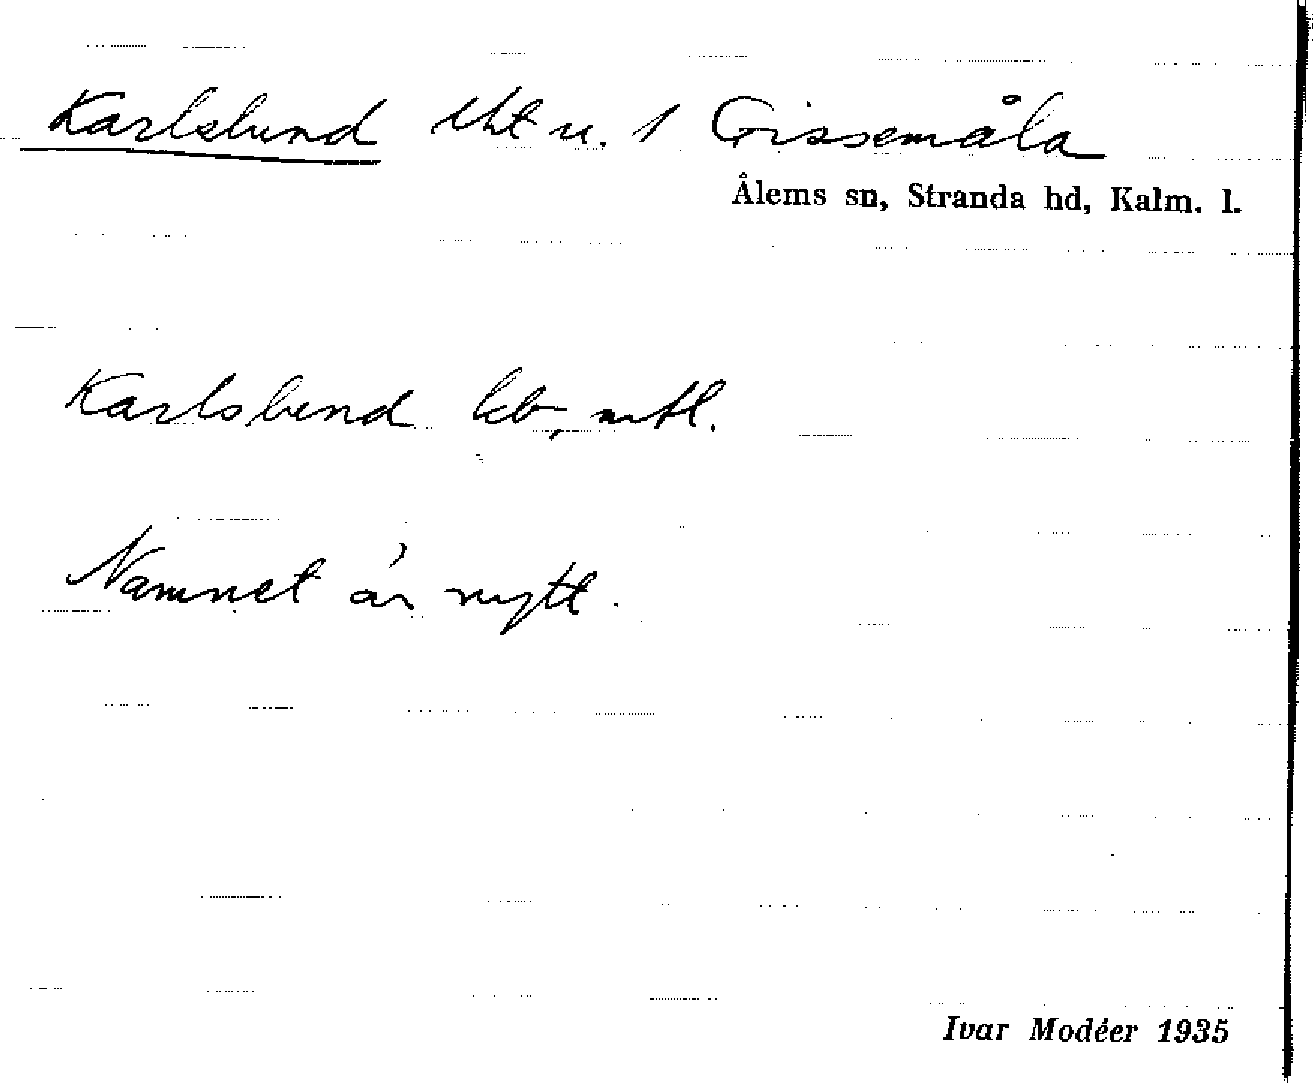 Karlslund lht u. 1 Gissemåla
Ålems sn, Stranda hd, Kalm. l.
Karlslund kb, mtl.
Namnet är nytt.
Ivar Modéer 1935